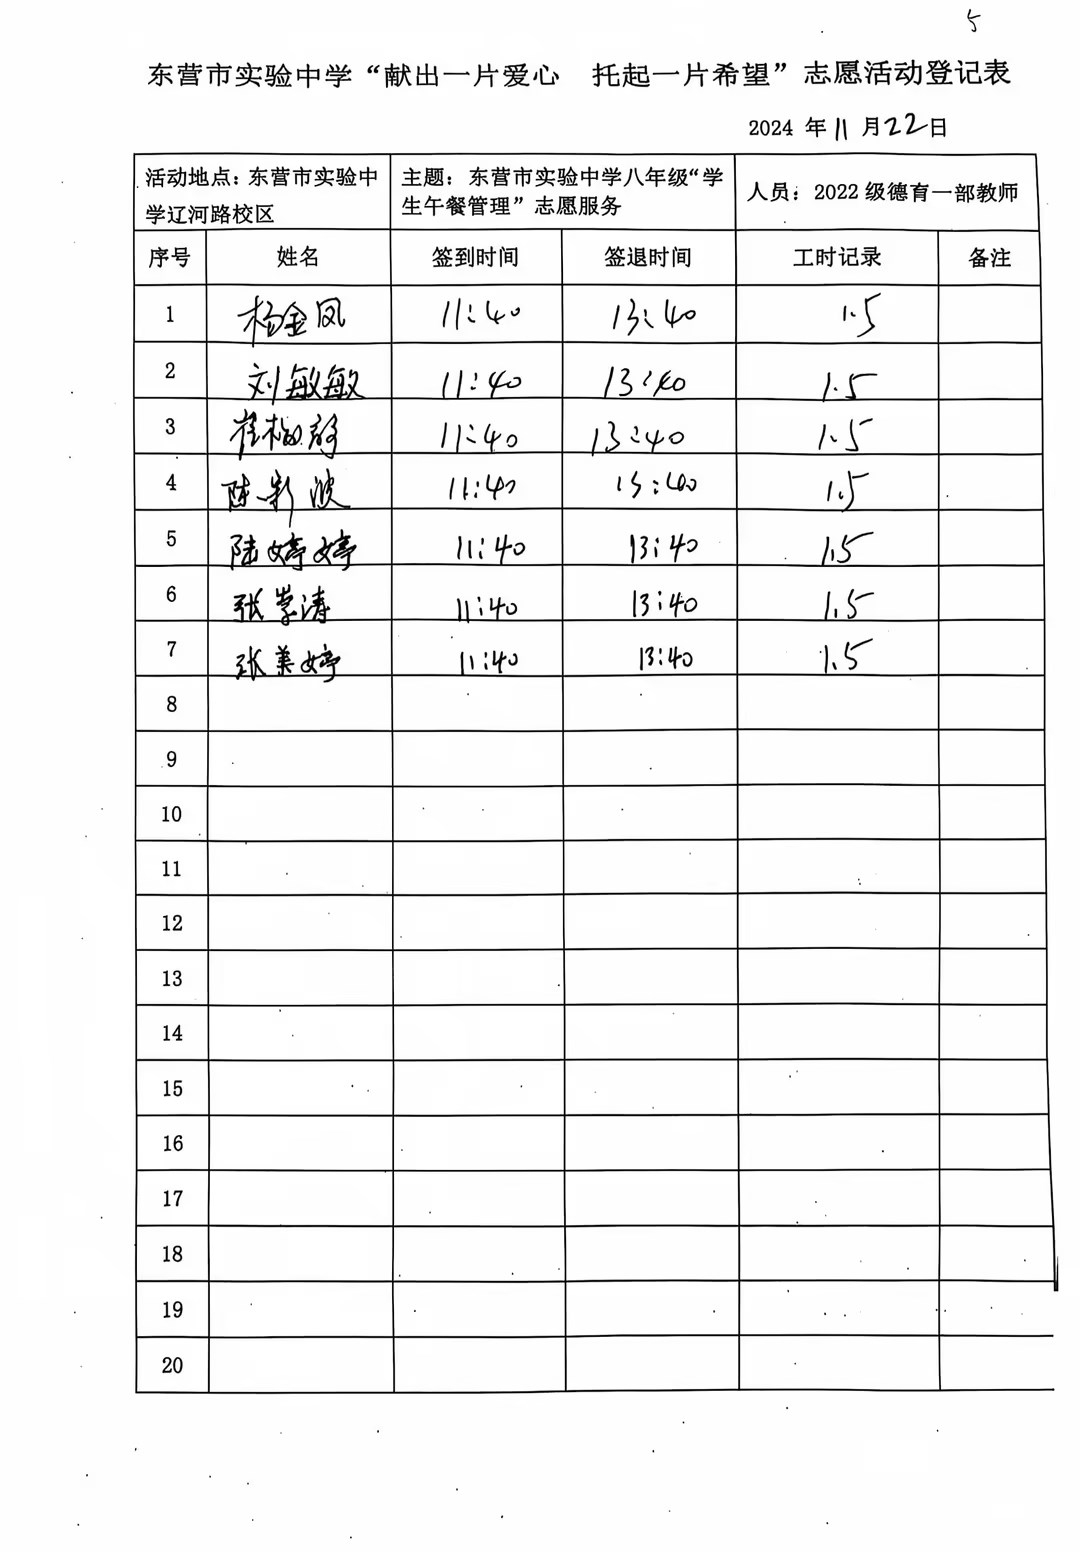 5
东营市实验中学“献出一片爱心 托起一片希望”志愿活动登记表
2024 年 11 月 22 日
活动地点：东营市实验中学辽河路校区 主题：东营市实验中学八年级“学生午餐管理”志愿服务 人员：2022 级德育一部教师
序号 姓名 签到时间 签退时间 工时记录 备注
1 杨金凤 11:40 13:40 1.5
2 刘敏敏 11:40 13:40 1.5
3 崔 11:40 13:40 1.5
4 陈影波 11:40 13:40 1.5
5 陆婷婷 11:40 13:40 1.5
6 张学涛 11:40 13:40 1.5
7 张美婷 11:40 13:40 1.5
8
9
10
11
12
13
14
15
16
17
18
19
20